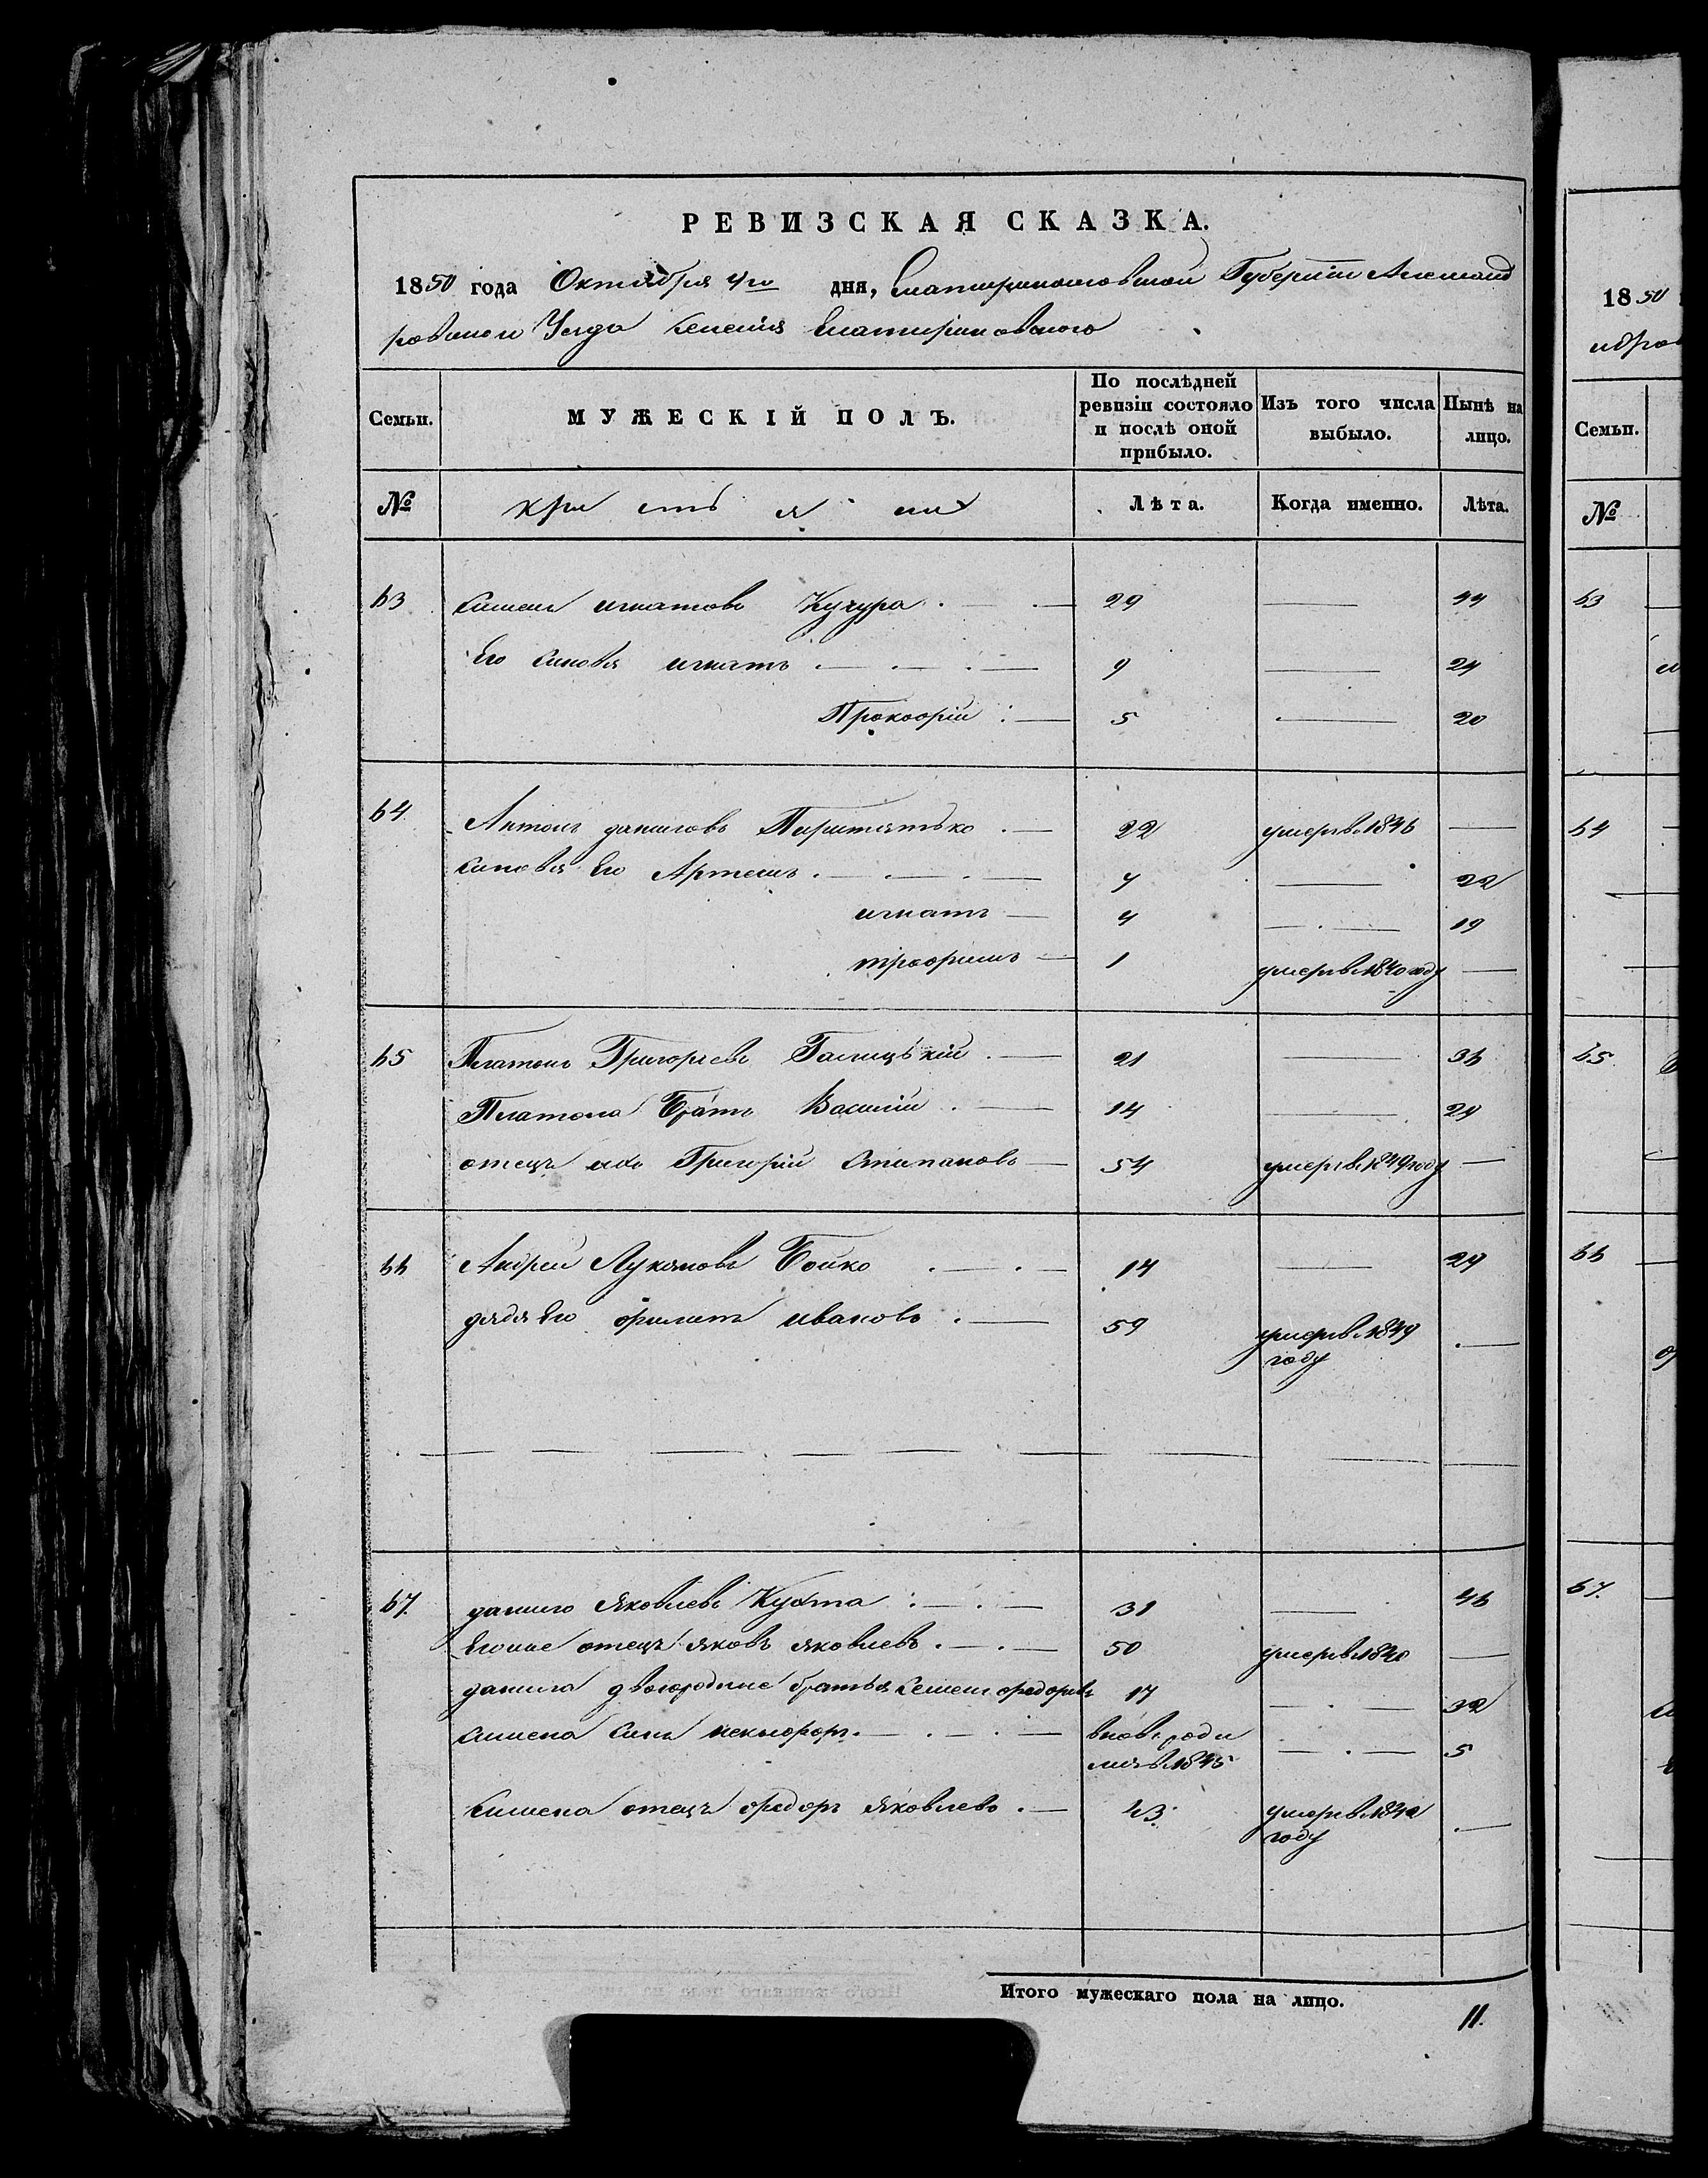 РЕВИЗСКАЯ СКАЗКА.
1850 года Октября 4го дня, Екатеринославской Губернии Александ
ровского Уезда селения Екатериновского
Семьи. МУЖЕСКІЙ ПОЛЪ. По послѣдней ревизіи состояло и послѣ оной прибыло. Изъ того числа выбыло. Нынѣ на лицо.
№ крестьяне Лѣта. Когда именно. Лѣта.
63 Симеон игнатовъ Кучура 29 — 44
Его синовя игнатъ 9 — 24
Прокофій 5 — 20
64 Антонъ даниловъ Перитятько 22 умеръ в 1846 —
синовя Его Артемъ 7 — 22
игнатъ 4 — 19
трофимъ 1 умеръ в 1840 году —
65 Платонъ Григорьевъ Галицькій 21 — 36
Платона Братъ Василій 14 — 29
отецъ ихъ Григорій Степановъ 54 умеръ в 1849 году —
66 Андрей Лукяновъ Бойко 14 — 29
дядя Его филипъ ивановъ 59 умеръ в 1849
году —
67. данило Яковлевъ Кухта 31 — 46
Егоже отецъ яковъ яковлевъ 50 умеръ в 1840 —
данила двоюродние братья Семенъ федоровъ 17 — 32
симена синъ никифоръ вновь роди
лся в 1845 — 5
Симена отецъ федоръ яковлевъ 43 умеръ в 1842
году —
Итого мужескаго пола на лицо. 11.
1850
ндров
Семьи.
№
63
64
65
66
67.